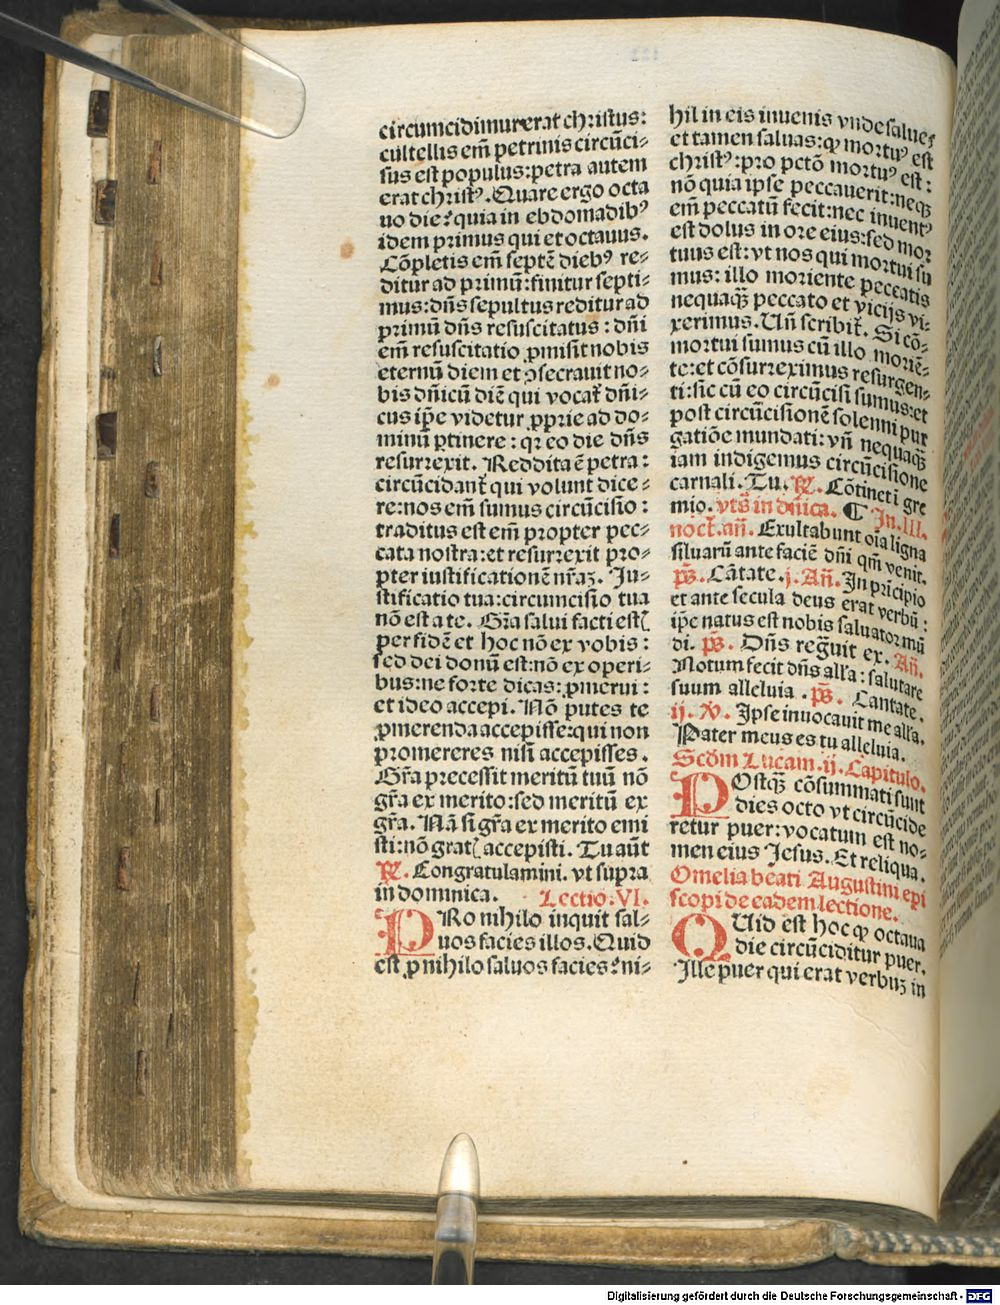 circumcidimur erat christus:
cultellis em̄ petrinis circūci⸗
sus est populus: petra autem
erat christꝰ. Quare ergo octa
uo die? quia in ebdomadibꝰ
idem primus qui et octauus.
Cōpletis em̄ septē diebꝰ re⸗
ditur ad primū: finitur septi⸗
mus: dn̄s sepultus reditur ad
primū dn̄s resuscitatus: dn̄i
em̄ resuscitatio ꝓmisit nobis
eternū diem et ↄsecrauit no⸗
bis dn̄icū diē qui vocat̄ dn̄i⸗
cus ip̄e videtur ꝓprie ad do⸗
minū ꝑtinere: qꝛ eo die dn̄s
resurrexit. Reddita ē petra:
circūcidant̄ qui volunt dice⸗
re: nos em̄ sumus circūcisio:
traditus est em̄ propter pec⸗
cata nostra: et resurrexit pro⸗
pter iustificationē nr̄aꝫ. Ju⸗
stificatio tua: circumcisio tua
nō est a te. Gr̄a salui facti estꝭ
per fidē et hoc nō ex vobis:
sed dei donū est: nō ex operi⸗
bus: ne forte dicas: ꝓmerui:
et ideo accepi. Nō putes te
ꝓmerenda accepisse: qui non
promereres nisi accepisses.
Gr̄a precessit meritū tuū nō
gr̄a ex merito: sed meritū ex
gr̄a. Nā si gr̄a ex merito emi
sti: nō gratꝭ accepisti. Tu aūt
℟. Congratulamini. vt supra
in dominica. Lectio. VI.
PRo nihilo inquit sal⸗
uos facies illos. Quid
est ꝓ nihilo saluos facies? ni⸗
hil in eis inuenis vnde salues
et tamen saluas: qꝫ mortuꝰ est
christꝰ: pro pctō mortuꝰ est:
nō quia ipse peccauerit: neqꝫ
em̄ peccatū fecit: nec inuentꝰ
est dolus in ore eius: sed mor
tuus est: vt nos qui mortui su
mus: illo moriente peccatis
nequaqꝫ̄ peccato et vicijs vi⸗
xerimus. Un̄ scribit̄. Si cō⸗
mortui sumus cū illo moriē⸗
te: et cōsurreximus resurgen⸗
ti: sic cū eo circūcisi sumus: et
post circūcisionē solenni pur
gatiōe mundati: vn̄ nequaqꝫ̄
iam indigemus circūcisione
carnali. Tu. ℟. Cōtincti gre
mio. vts̄ in dn̄ica. ¶ In. III.
noct̄. an̄. Exultabunt oīa ligna
siluarū ante faciē dn̄i qm̄ venit.
ps̄. Cātate. j. An̄. In prīcipio
et ante secula deus erat verbū:
ip̄e natus est nobis saluator mū
di. ps̄. Dn̄s regͥuit ex. An̄.
Notum fecit dn̄s all'a: salutare
suum alleluia. ps̄. Cantate.
ij. ℣. Ipse inuocauit me all'a.
Pater meus es tu alleluia.
Scd̄m Lucam. ij. Capitulo.
POstqꝫ̄ cōsummati sunt
dies octo vt circūcide
retur puer: vocatum est no⸗
men eius Jesus. Et reliqua.
Omelia beati Augustini epi
scopi de eadem lectione.
QUid est hoc qꝫ octaua
die circūciditur puer.
Ille puer qui erat verbuꝫ in
Digitalisierung gefördert durch die Deutsche Forschungsgemeinschaft - DFG